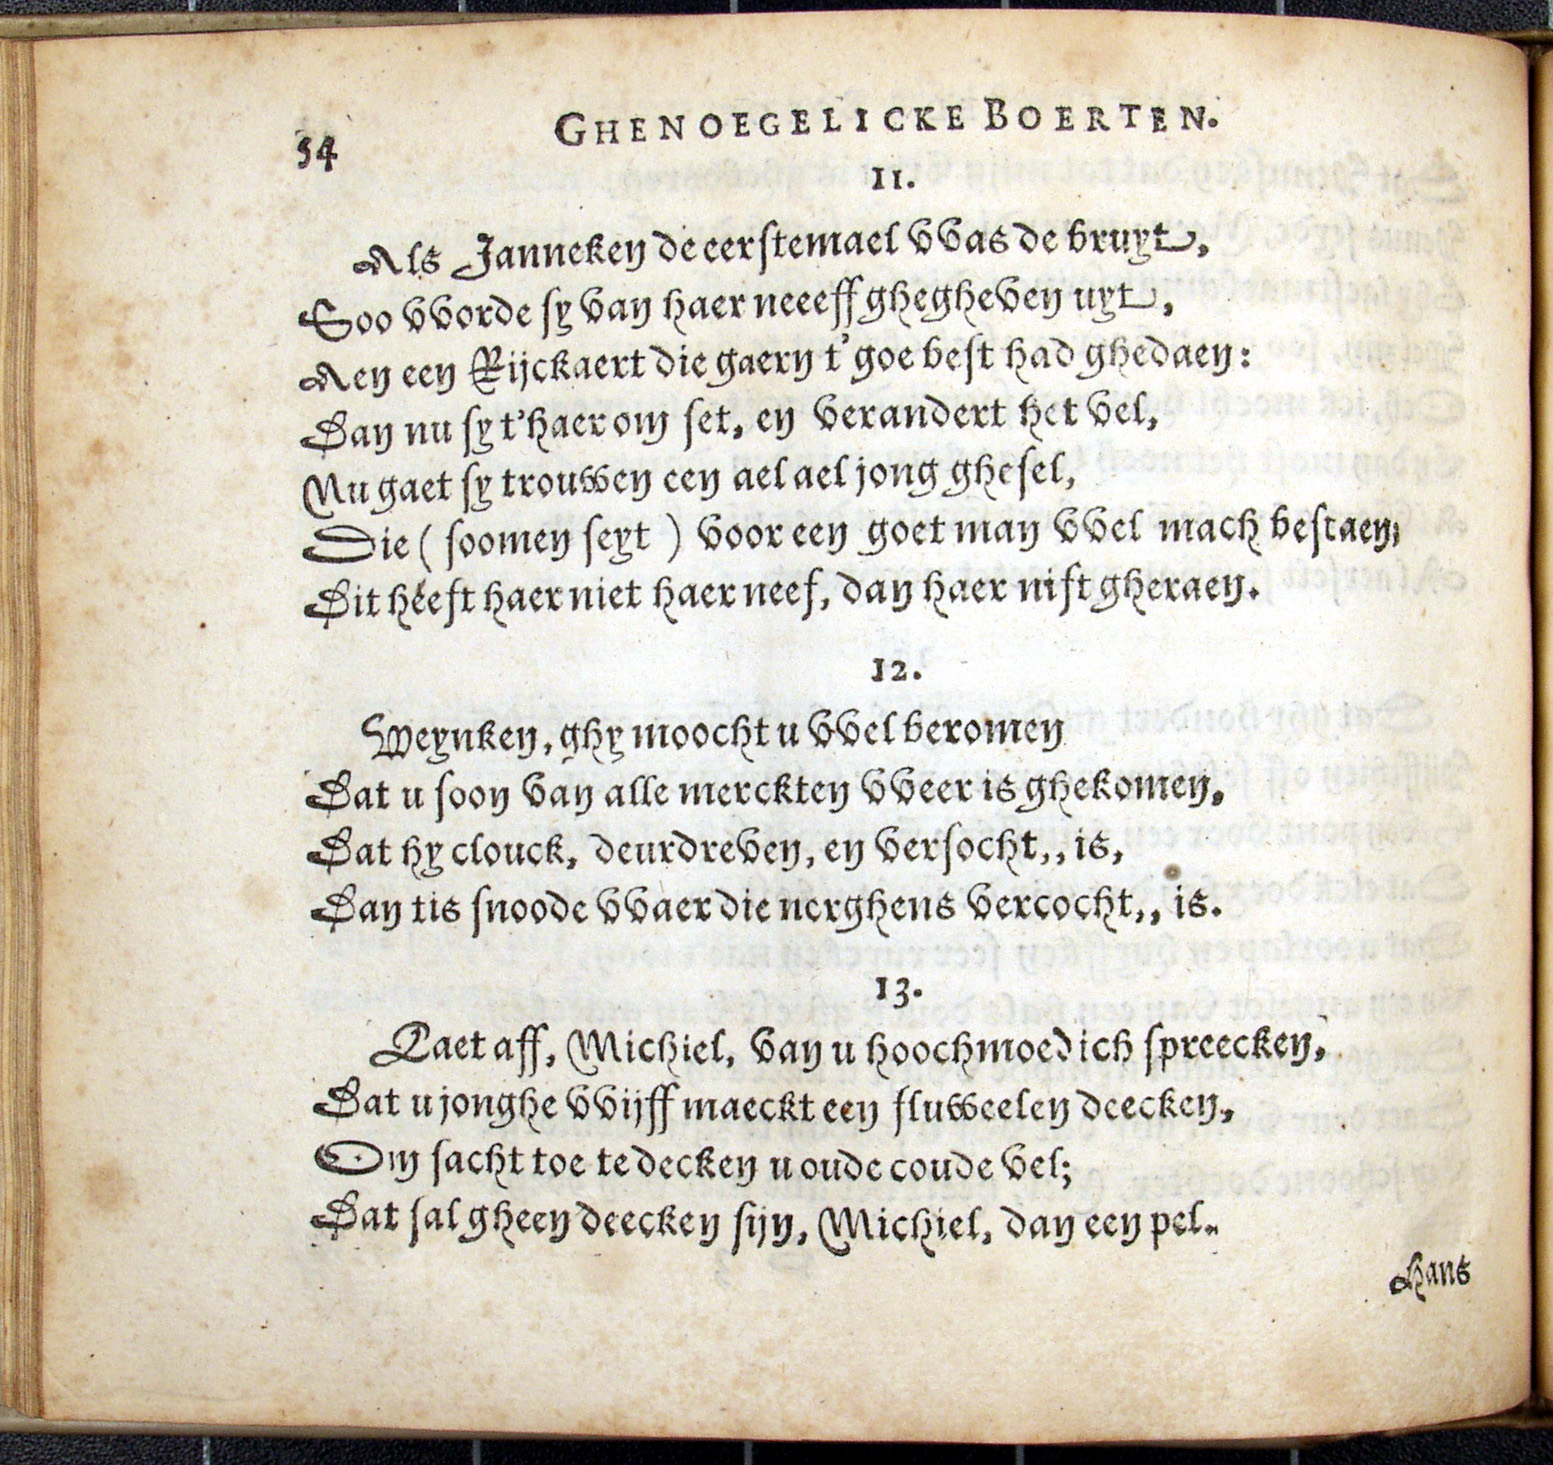 54
GHENOEGELICKE BOERTEN.
11.
Als Janneken de eerstemael vvas de bruyt,
Soo vvorde sy van haer neeeff ghegheven uyt,
Aen een Rijckaert die gaern t'goe best had ghedaen:
Dan nu sy t'haer om set, en verandert het vel,
Nu gaet sy trouwen een ael ael jong ghesel,
Die ( soomen seyt ) voor een goet man vvel mach bestaen,
Dit heeft haer niet haer neef, dan haer nift gheraen.
12.
Weynken, ghy moocht u vvel beromen
Dat u soon van alle merckten vveer is ghekomen,
Dat hy clouck, deurdreven, en versocht,, is,
Dan tis snoode vvaer die nerghens vercocht,, is.
13.
Laet aff, Michiel, van u hoochmoedich spreecken,
Dat u jonghe vvijff maeckt een fluweelen deecken,
Om sacht toe te decken u oude coude vel;
Dat sal gheen deecken sijn, Michiel, dan een pel.
Hans